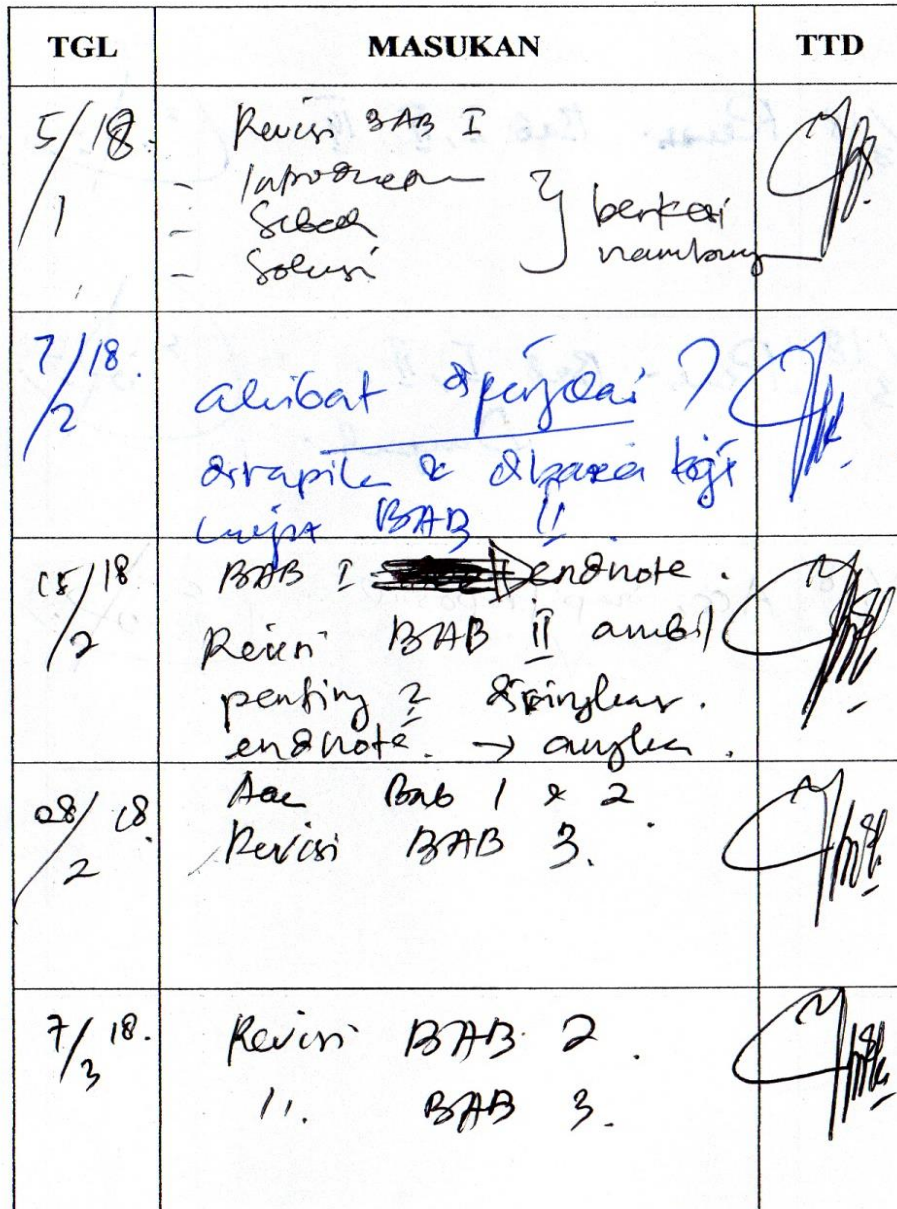 TGL MASUKAN TTD
5/1 18. Revisi BAB I
-
- Sebab } berkesi
- Solusi nambung
7/2 18. akibat ?
dirapikan & dibaca lagi
lanjut BAB II
15/2 18 BAB I endnote.
Revisi BAB II ambil
penting 2 diringkas.
endnote. → angka.
28/2 18. Acc Bab 1 & 2.
Revisi BAB 3.
7/3 18. Revisi BAB 2.
11. BAB 3.